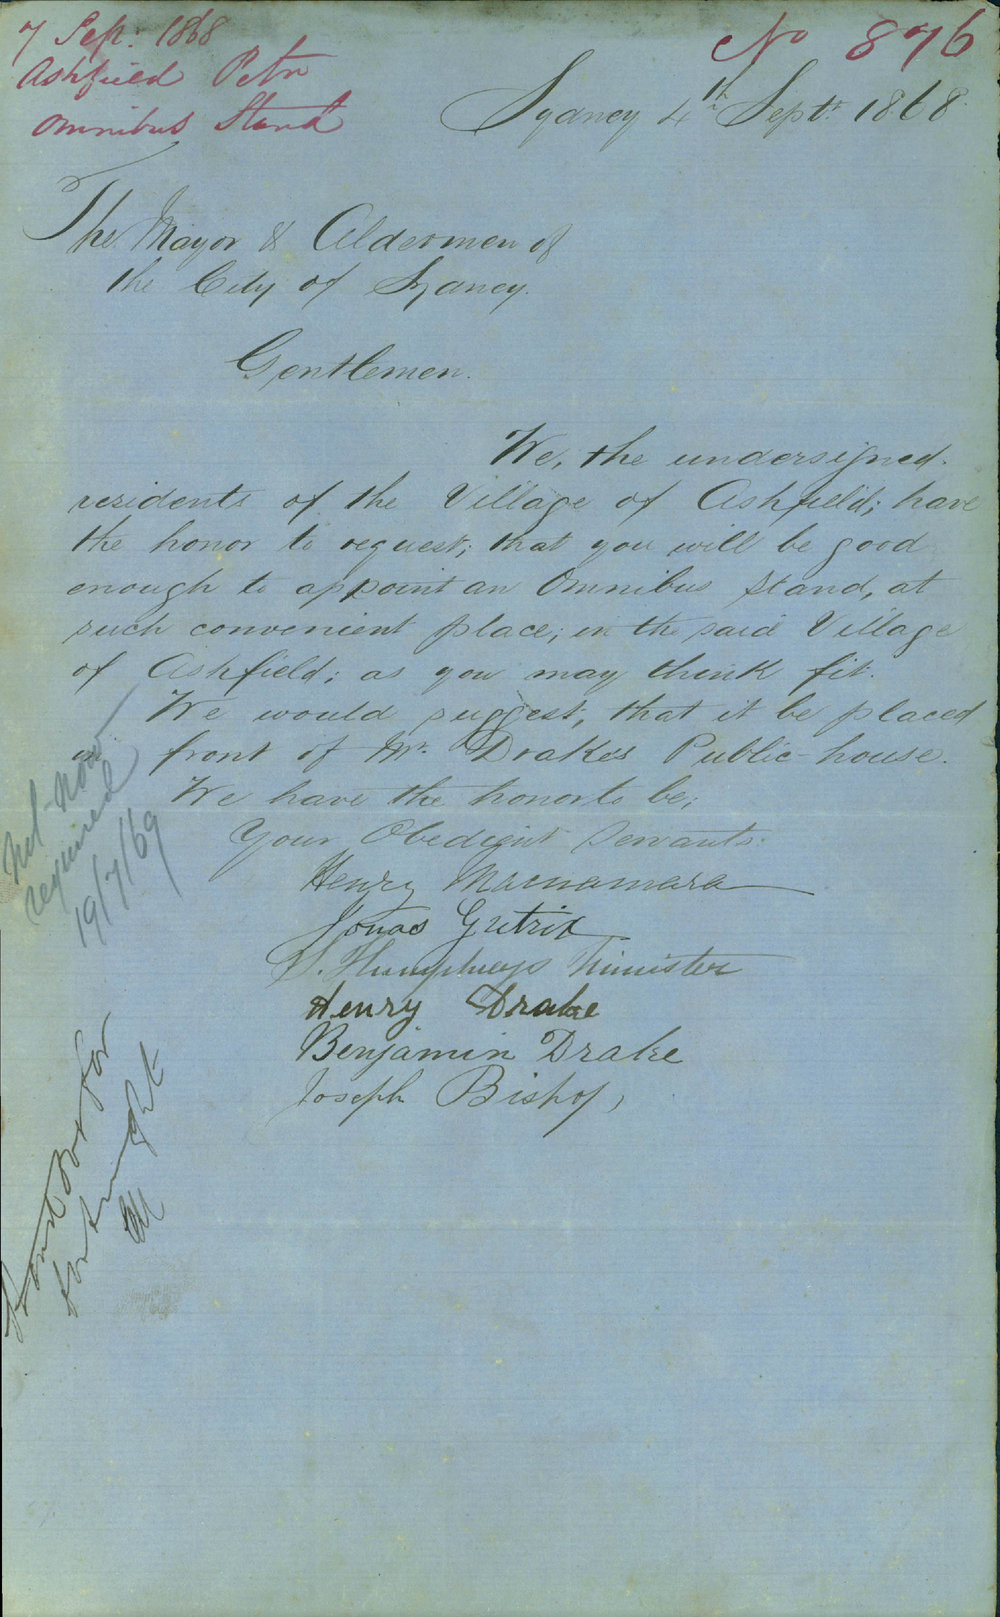 7 Sep: 1868
Ashfield Petn
Omnibus Stand
No 876
Sydney 4th Septr 1868
The Mayor & Aldermen of
the City of Sydney.
Gentlemen.
We, the undersigned.
residents of the Village of Ashfield; have
the honor to request; that you will be good
enough to appoint an Omnibus Stand, at
such convenient place; in the said Village
of Ashfield; as you may think fit.
We would suggest, that it be placed
in front of Mr. Drakes Public-house.
We have the honor to be;
Your Obedient Servants.
Henry Macnamara
Jonas Gutrix
Humphreys Minister
Henry Drake
Benjamin Drake
Joseph Bishop,
Not now
required
19/7/69
for
fortnight